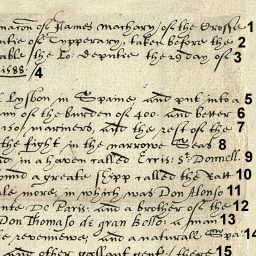 macon of James Machary, of the Crosse 1
ntie of Tipperary, taken before the 2
able the Lo: Deputie the 29 day of 3
1588. 4
Lysbon in Spaine and put into a 5
of the burden of 400. and better 6
150 mariners, and the rest of the 7
the fight in the narrowe Seas 8
nd in a haven called Erris: St Donnell 9
found a greate shipp called the Ratt 10
ale more, in which was Don Alonso 11
nte De Paris. and a brother of the 12
Don Thomaso de gran Bello: a man 13
e revenewe, and a naturall Spa 14
and other gallant gent: these 15